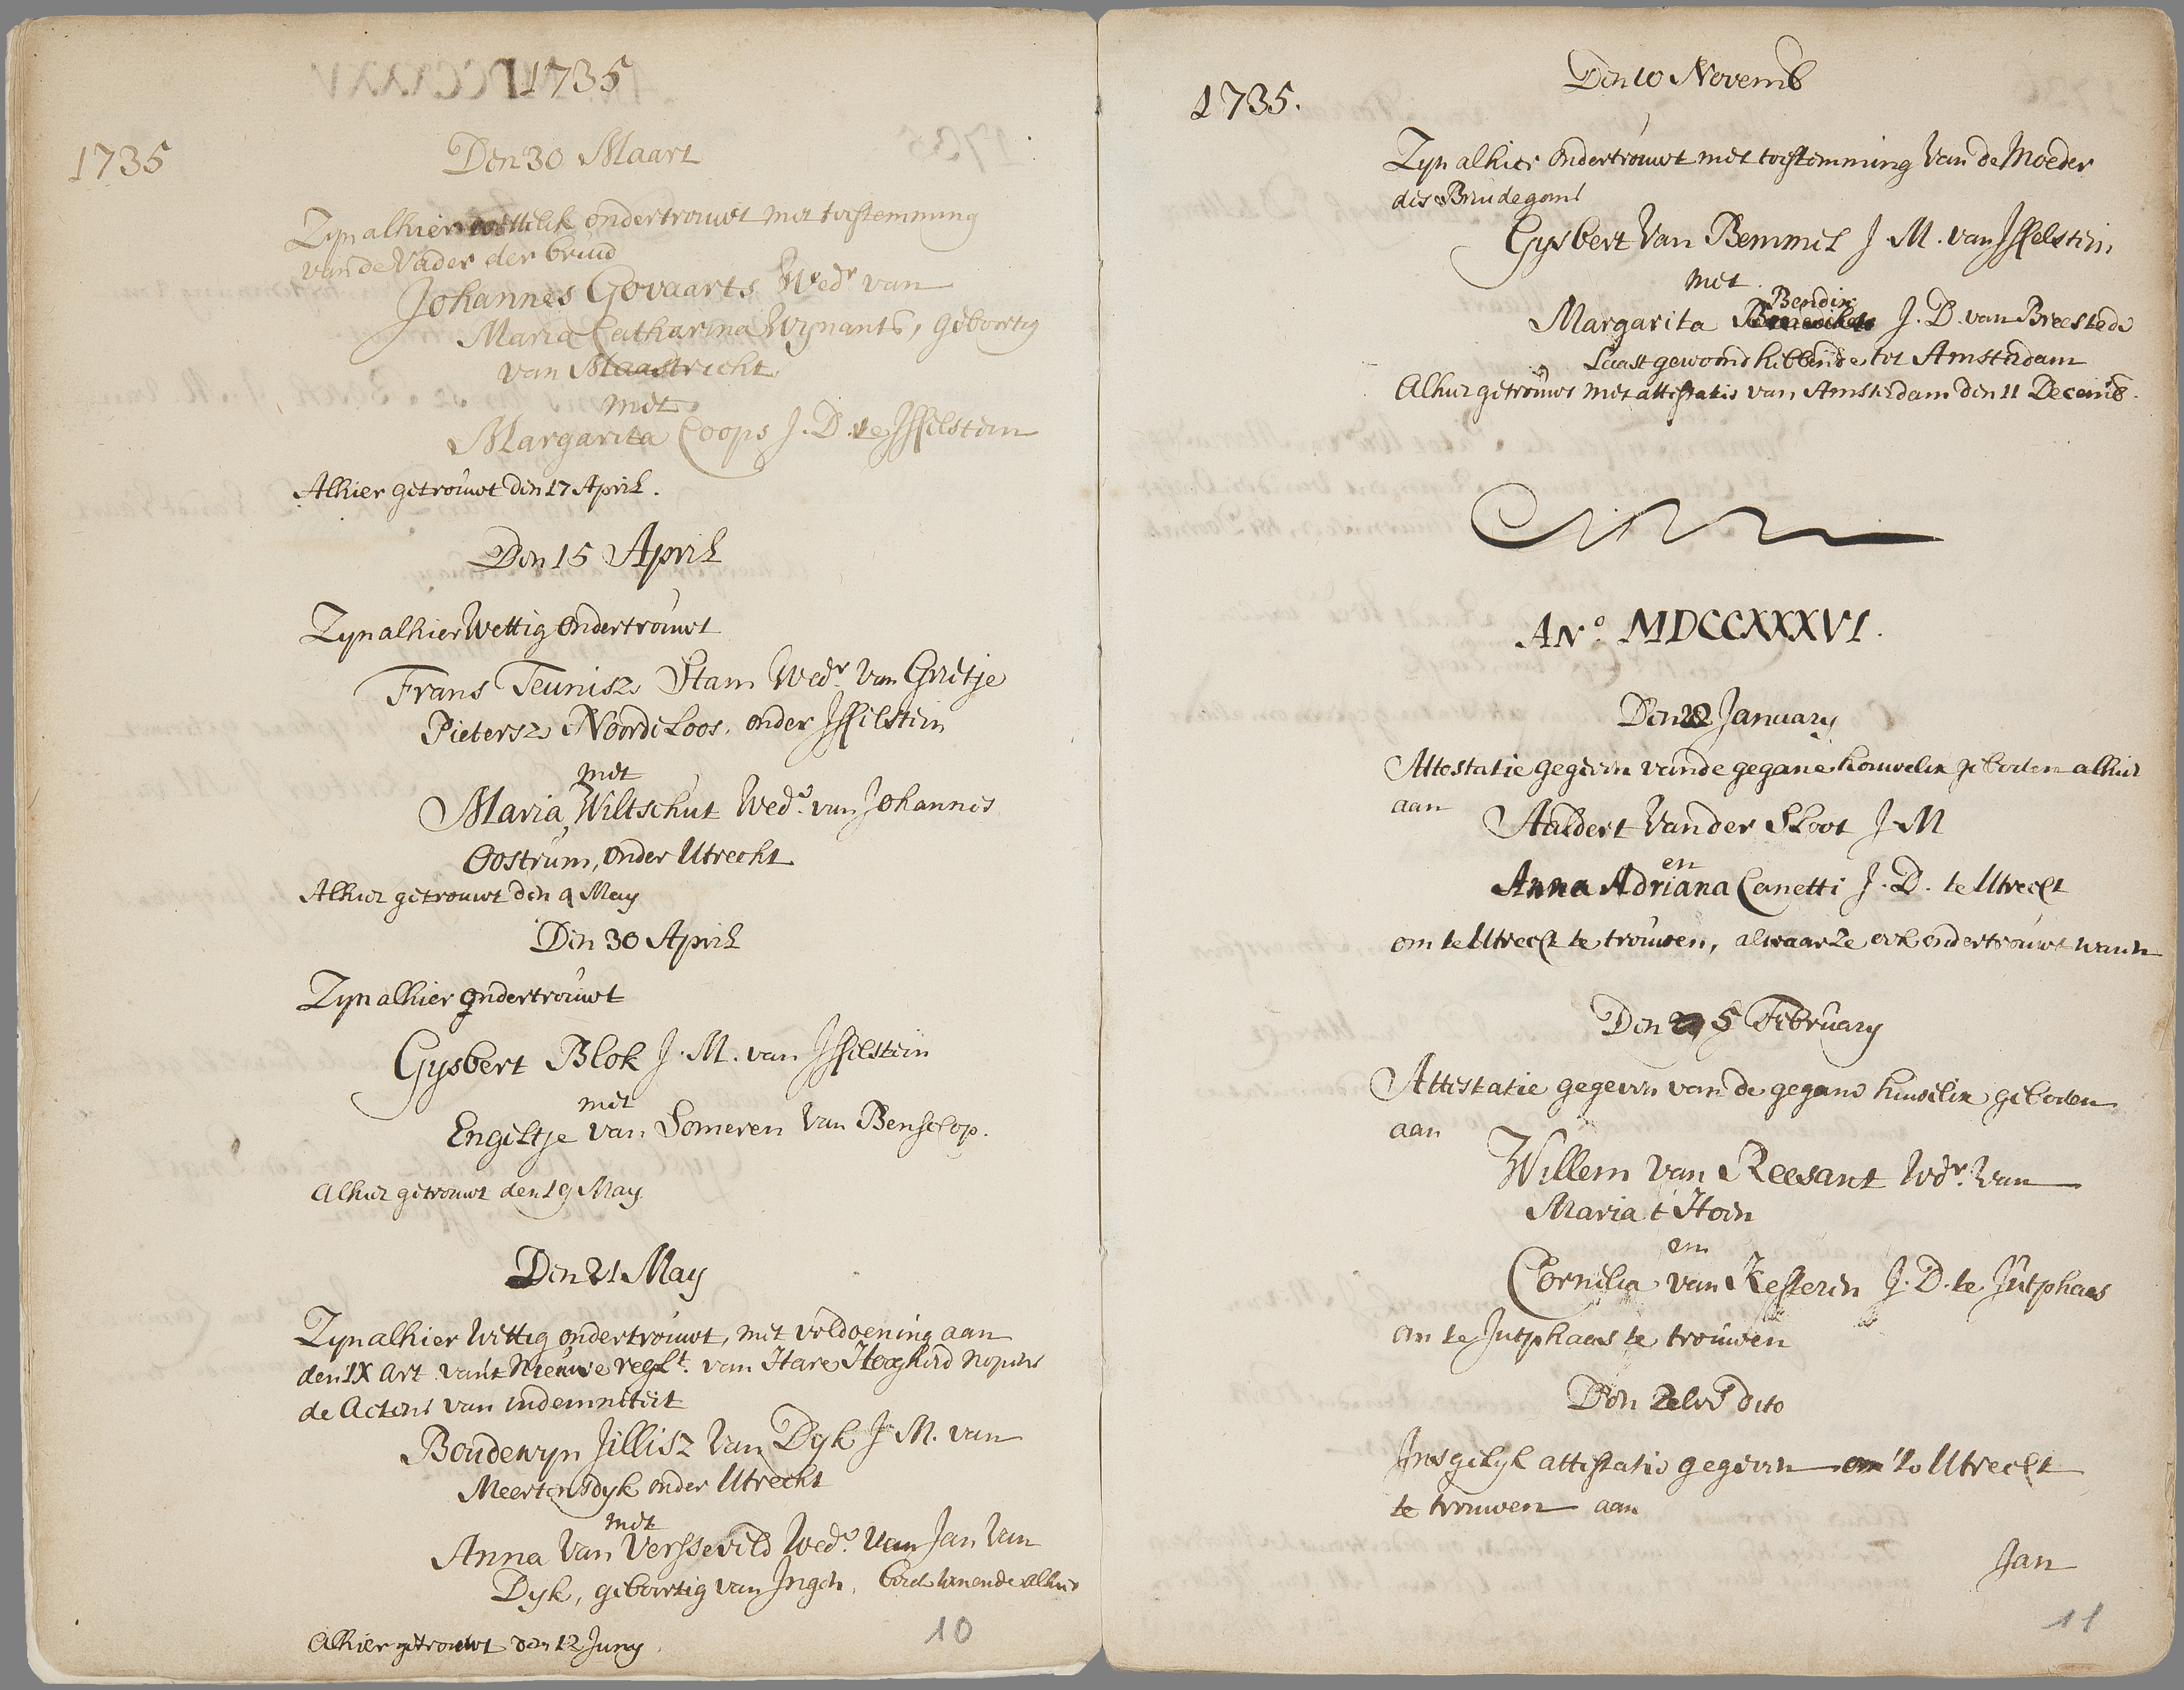 1735
1735
Den 30 Maart
Zyn alhier wettelik ondertrouwt met toestemming
van de Vader der bruid
Johannes Govaarts Wedr van
Maria Catharina Wynants, gebortig
van Maastricht
met
Margarita Coops J. D. te Isselstein
Alhier getrouwt den 17 April.
Den 15 April
Zyn alhier Wettig ondertrouwt
Frans Teunisz Stam Wedr. van Grietje
Pietersz Noordeloos, onder Isselstein
met
Maria Wiltschut Wede. van Johannes
Oostrum, onder Utrecht
Alhier getrouwt den 9 May
Den 30 April
Zyn alhier ondertrouwt
Gysbert Blok J. M. van Isselstein
met
Engeltje van Someren van Benschop.
Alhier getrouwt den 19 May
Den 21 May
Zyn alhier Wettig ondertrouwt, met voldoening aan
den IX Art van't Nieuwe reglt. van Hare Hoogheid nopens
de Actens van indemniteit
Boudewyn Jillisz Van Dyk J. M. van
Meertensdyk onder Utrecht
met
Anna Van Versseveld Wede. van Jan Van
Dyk, geboortig van Ingen, beide wonende alhier
Alhier getrouwt den 12 Juny.
10
1735.
Den 10 Novemb
Zyn alhier ondertrouwt met toestemming van de Moeder
des Bruidegoms
Gysbert Van Bemmel J. M. van Isselstein
met
Bendix
Margarita J. D. van Breestede
Laast gewoond hebbende tot Amsterdam
Alhier getrouwt met attestatie van Amsterdam den 11 Decemb.
ANo. MDCCXXXVI.
Den 22 January
Attestatie gegeven van de gegane houwelix geboden alhier
aan
Aaldert Van der Sloot J. M
en
Anna Adriana Canetti J. D. te Utrecht
om te Utrecht te trouwen, alwaar ze ook ondertrouwt waren
Den 5 February
Attestatie gegeven van de gegane huwelix geboden
aan
Willem van Reesant Wdr. van
Maria t Hoen
en
Cornelia van Kesteren J. D. te Jutphaas
om te Jutphaas te trouwen
Den Zelve dito
Insgelyk attestatie gegeven om te Utrecht
te trouwen aan
Jan
11